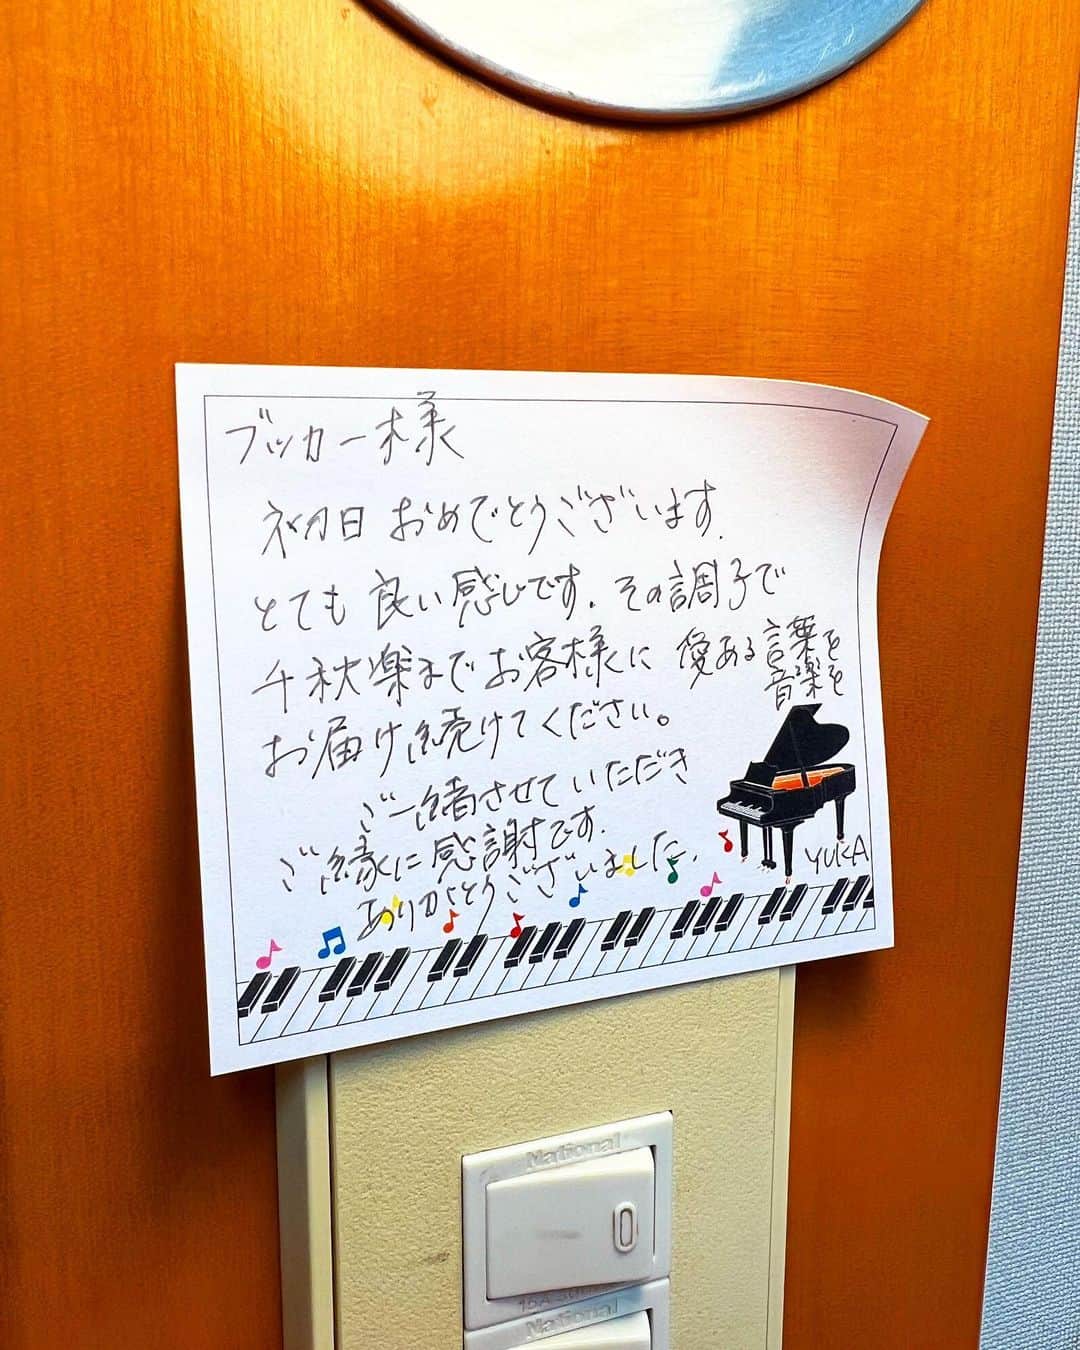 ブッカー様
初日おめでとうございます.
とても良い感じです.その調子で
千秋楽までお客様に愛ある言葉を
音楽を
お届け続けてください。
ご一緒させていただき
ご縁に感謝です.
ありがとうございました.
YUKA
National
15A 300V
National